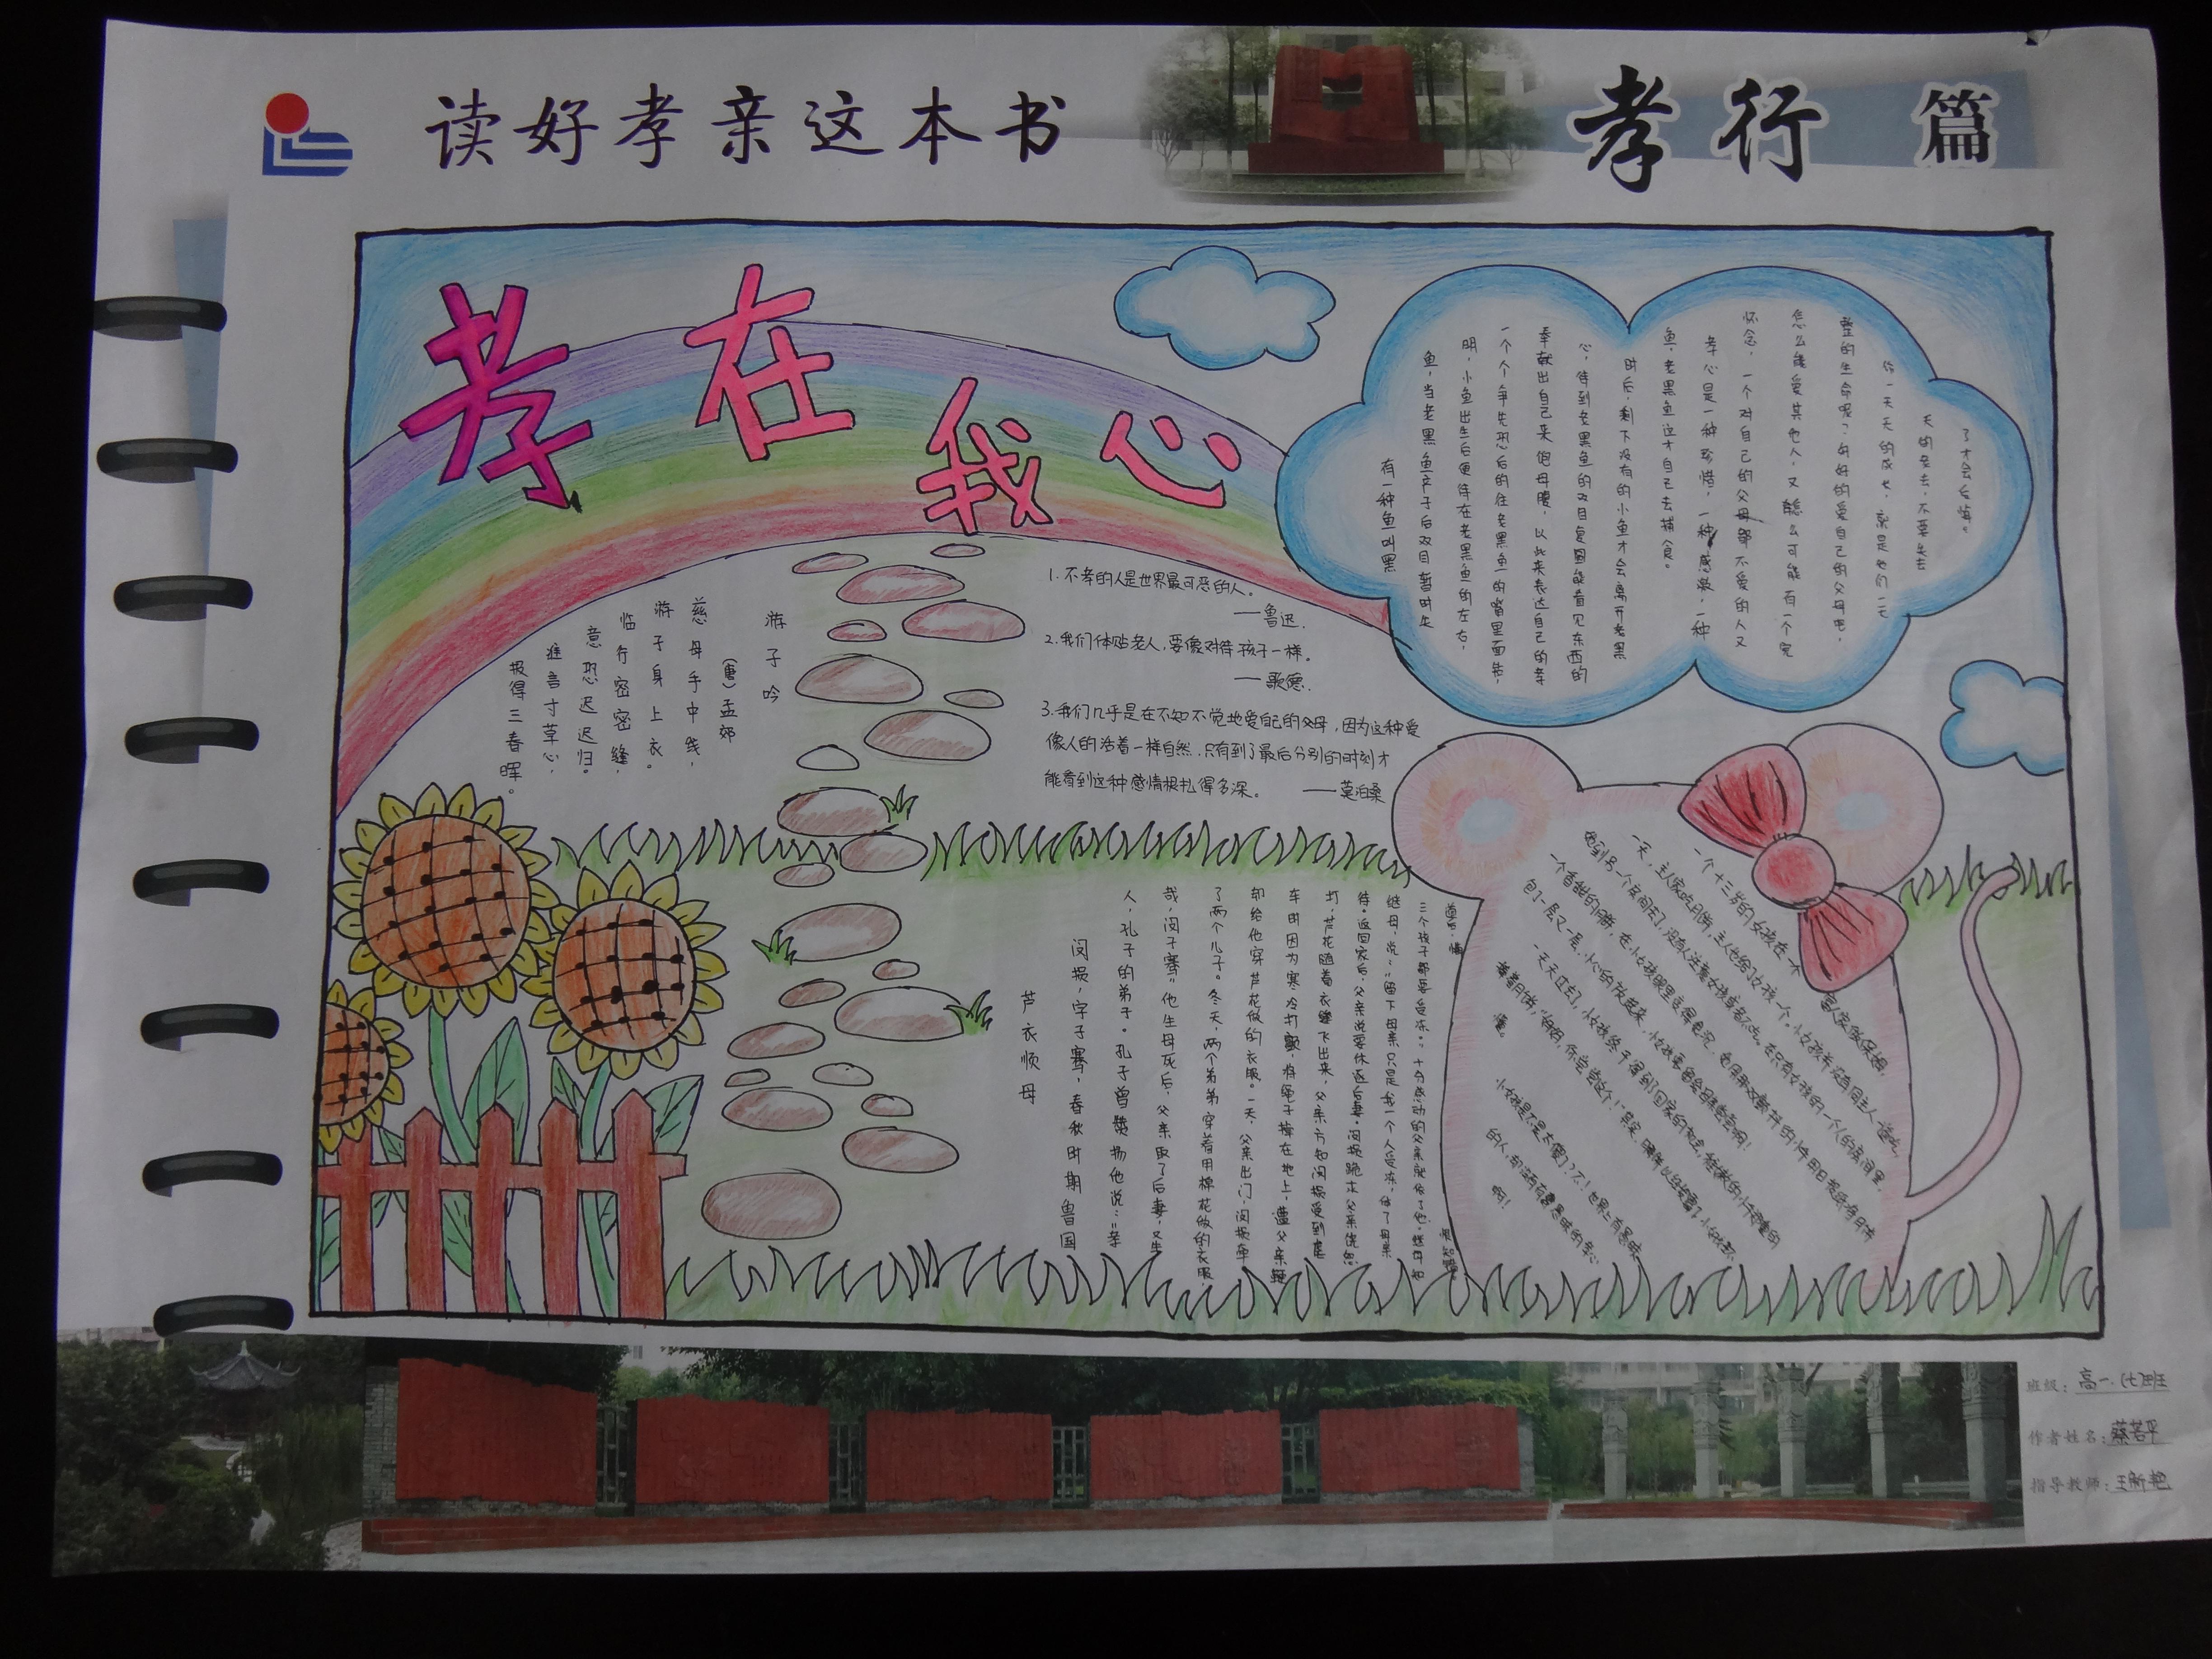 读好孝亲这本书
孝行 篇
孝在我心
有一种鱼叫黑
鱼，当老黑鱼产子后双目暂时失
明，小鱼出生后便待在老黑鱼的左右，
一个个争先恐后的往老黑鱼的嘴里面钻，
奉献出自己来饱母腹，以此来表达自己的孝
心，待到老黑鱼的双目复圆能看见东西的
时后，剩下没有的小鱼才会离开老黑
鱼，老黑鱼这才自己去捕食。
孝心是一种珍惜，一种感激，一种
怀念，一个对自己的父母都不爱的人又
怎么能爱其他人，又怎么可能有一个完
整的生命呢？好好的爱自己的父母吧，
你一天天的成长，就是他们一天
天的老去，不要失去
了才会后悔。
游子吟
（唐）孟郊
慈母手中线，
游子身上衣。
临行密密缝，
意恐迟迟归。
谁言寸草心，
报得三春晖。
1.不孝的人是世界最可恶的人。
——鲁迅.
2.我们体贴老人，要像对待孩子一样。
——歌德.
3.我们几乎是在不知不觉地爱自己的父母，因为这种爱
像人的活着一样自然.只有到了最后分别的时刻才
能看到这种感情根扎得多深。 ——莫泊桑
芦衣顺母
闵损，字子骞，春秋时期鲁国
人，孔子的弟子。孔子曾赞扬他说：“孝
哉，闵子骞”他生母死后，父亲取了后妻，又生
了两个儿子。冬天，两个弟弟穿着用棉花做的衣服
却给他穿芦花做的衣服。一天，父亲出门，闵损牵
车时因为寒冷打颤，将绳子掉在地上，遭父亲鞭
打，芦花随着衣缝飞出来，父亲方知闵损受到虐
待。返回家后，父亲说要休逐后妻。闵损跪求父亲饶恕
继母，说：“留下母亲只是我一个人受冻，休了母亲
三个孩子都要受冻。”十分感动的父亲就依了他。继母知
一个十三岁的女孩在一
富人家做保姆，
一天，主人家吃月饼，主人也给了女孩一个。小女孩并没有同主人一道吃，
一个香甜的月饼，在小女孩眼里
包了一层又一层，小心的放起来，小女孩要留给母亲尝尝啊！
一天天过去了，小女孩终于
小女孩是不是太傻了？不！世界上有
啊！
班级：高一.(七)班
作者姓名：蔡若平
指导教师：王新艳